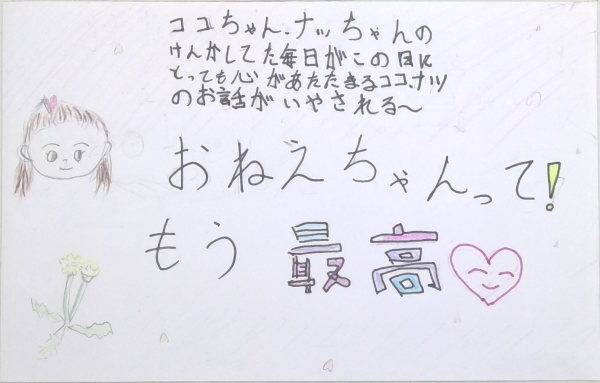 ココちゃん、ナッちゃんの
けんかしてた毎日がこの日に
とっても心があたたまるココ、ナツ
のお話がいやされる〜
おねえちゃんって!
もう最高